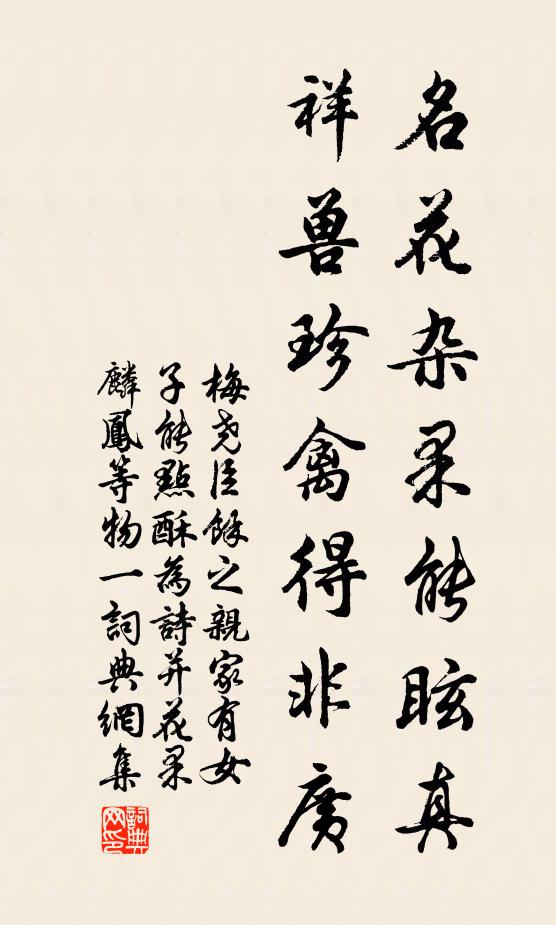 名花杂果能眩真
祥兽珍禽得非廣
梅尧臣餘之親家有女
子能點酥為詩并花果
麟鳳等物一詞典網集
詞典网印